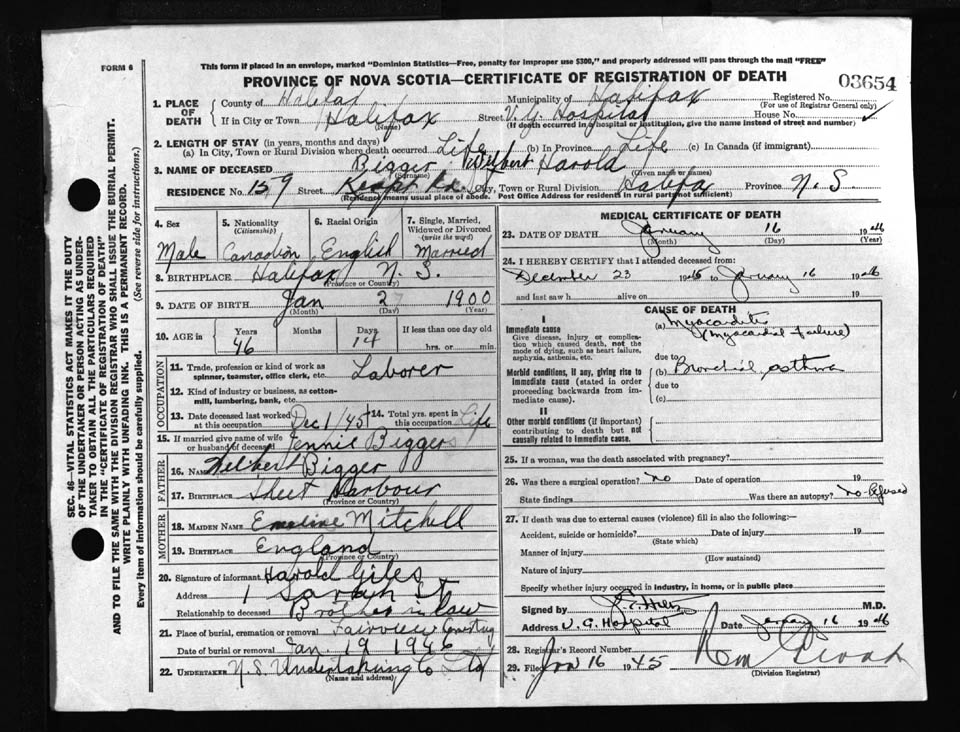 FORM 6
This form if placed in an envelope, marked "Dominion Statistics—Free, penalty for improper use $300," and properly addressed will pass through the mail "FREE"
PROVINCE OF NOVA SCOTIA—CERTIFICATE OF REGISTRATION OF DEATH
03654
SEC. 46—VITAL STATISTICS ACT MAKES IT THE DUTY
OF THE UNDERTAKER OR PERSON ACTING AS UNDER-
TAKER TO OBTAIN ALL THE PARTICULARS REQUIRED
IN THE "CERTIFICATE OF REGISTRATION OF DEATH"
AND TO FILE THE SAME WITH THE DIVISION REGISTRAR WHO SHALL ISSUE THE BURIAL PERMIT.
WRITE PLAINLY WITH UNFADING INK. THIS IS A PERMANENT RECORD.
Every item of information should be carefully supplied. (See reverse side for instructions.)
1. PLACE OF DEATH County of Halifax Municipality of Halifax Registered No.
(For use of Registrar General only)
If in City or Town Halifax Street V.G. Hospital House No. ✓
(Name) (If death occurred in a hospital or institution, give the name instead of street and number)
2. LENGTH OF STAY (in years, months and days)
(a) In City, Town or Rural Division where death occurred Life (b) In Province Life (c) In Canada (if immigrant)
3. NAME OF DECEASED Bigger Wilbert Harold
(Surname) (Given name or names)
RESIDENCE No. 159 Street Kempt Rd. City, Town or Rural Division Halifax Province N. S.
(Residence means usual place of abode. Post Office Address for residents in rural parts not sufficient)
4. Sex 5. Nationality (Citizenship) 6. Racial Origin 7. Single, Married, Widowed or Divorced (write the word)
Male Canadian English Married
8. BIRTHPLACE Halifax N. S.
(Province or Country)
9. DATE OF BIRTH Jan 2 1900
(Month) (Day) (Year)
10. AGE in Years Months Days If less than one day old
46 14 hrs. or min.
OCCUPATION
11. Trade, profession or kind of work as spinner, teamster, office clerk, etc. Laborer
12. Kind of industry or business, as cotton-mill, lumbering, bank, etc.
13. Date deceased last worked at this occupation Dec 1/45 14. Total yrs. spent in this occupation Life
15. If married give name of wife or husband of deceased Jennie Biggers
FATHER
16. NAME Wilbert Bigger
17. BIRTHPLACE Sheet Harbour
(Province or Country)
MOTHER
18. MAIDEN NAME Emeline Mitchell
19. BIRTHPLACE England
(Province or Country)
20. Signature of informant Harold Giles
Address 1 Sarah St
Relationship to deceased Brother in law
21. Place of burial, cremation or removal Fairview Cemetery
Date of burial or removal Jan. 19 1946 19
22. UNDERTAKER N.S. Undertaking Co Ltd
(Name and address)
MEDICAL CERTIFICATE OF DEATH
23. DATE OF DEATH January 16 1946
(Month) (Day) (Year)
24. I HEREBY CERTIFY that I attended deceased from:
December 23 1945 to January 16 1946
and last saw h alive on 19
CAUSE OF DEATH
I
Immediate cause
Give disease, injury or complication which caused death, not the mode of dying, such as heart failure, asphyxia, asthenia, etc.
(a) Myocarditis
(Myocardial failure)
due to
Morbid conditions, if any, giving rise to immediate cause (stated in order proceeding backwards from immediate cause).
(b) Bronchial asthma
due to
(c)
II
Other morbid conditions (if important) contributing to death but not causally related to immediate cause.
25. If a woman, was the death associated with pregnancy?
26. Was there a surgical operation? No Date of operation 19
State findings Was there an autopsy? No-Refused
27. If death was due to external causes (violence) fill in also the following:—
Accident, suicide or homicide? Date of injury 19
(State which)
Manner of injury
(How sustained)
Nature of injury
Specify whether injury occurred in industry, in home, or in public place
Signed by M.D.
Address V. G. Hospital Date January 16 1946
28. Registrar's Record Number
29. Filed Jan 16 1945
(Division Registrar)